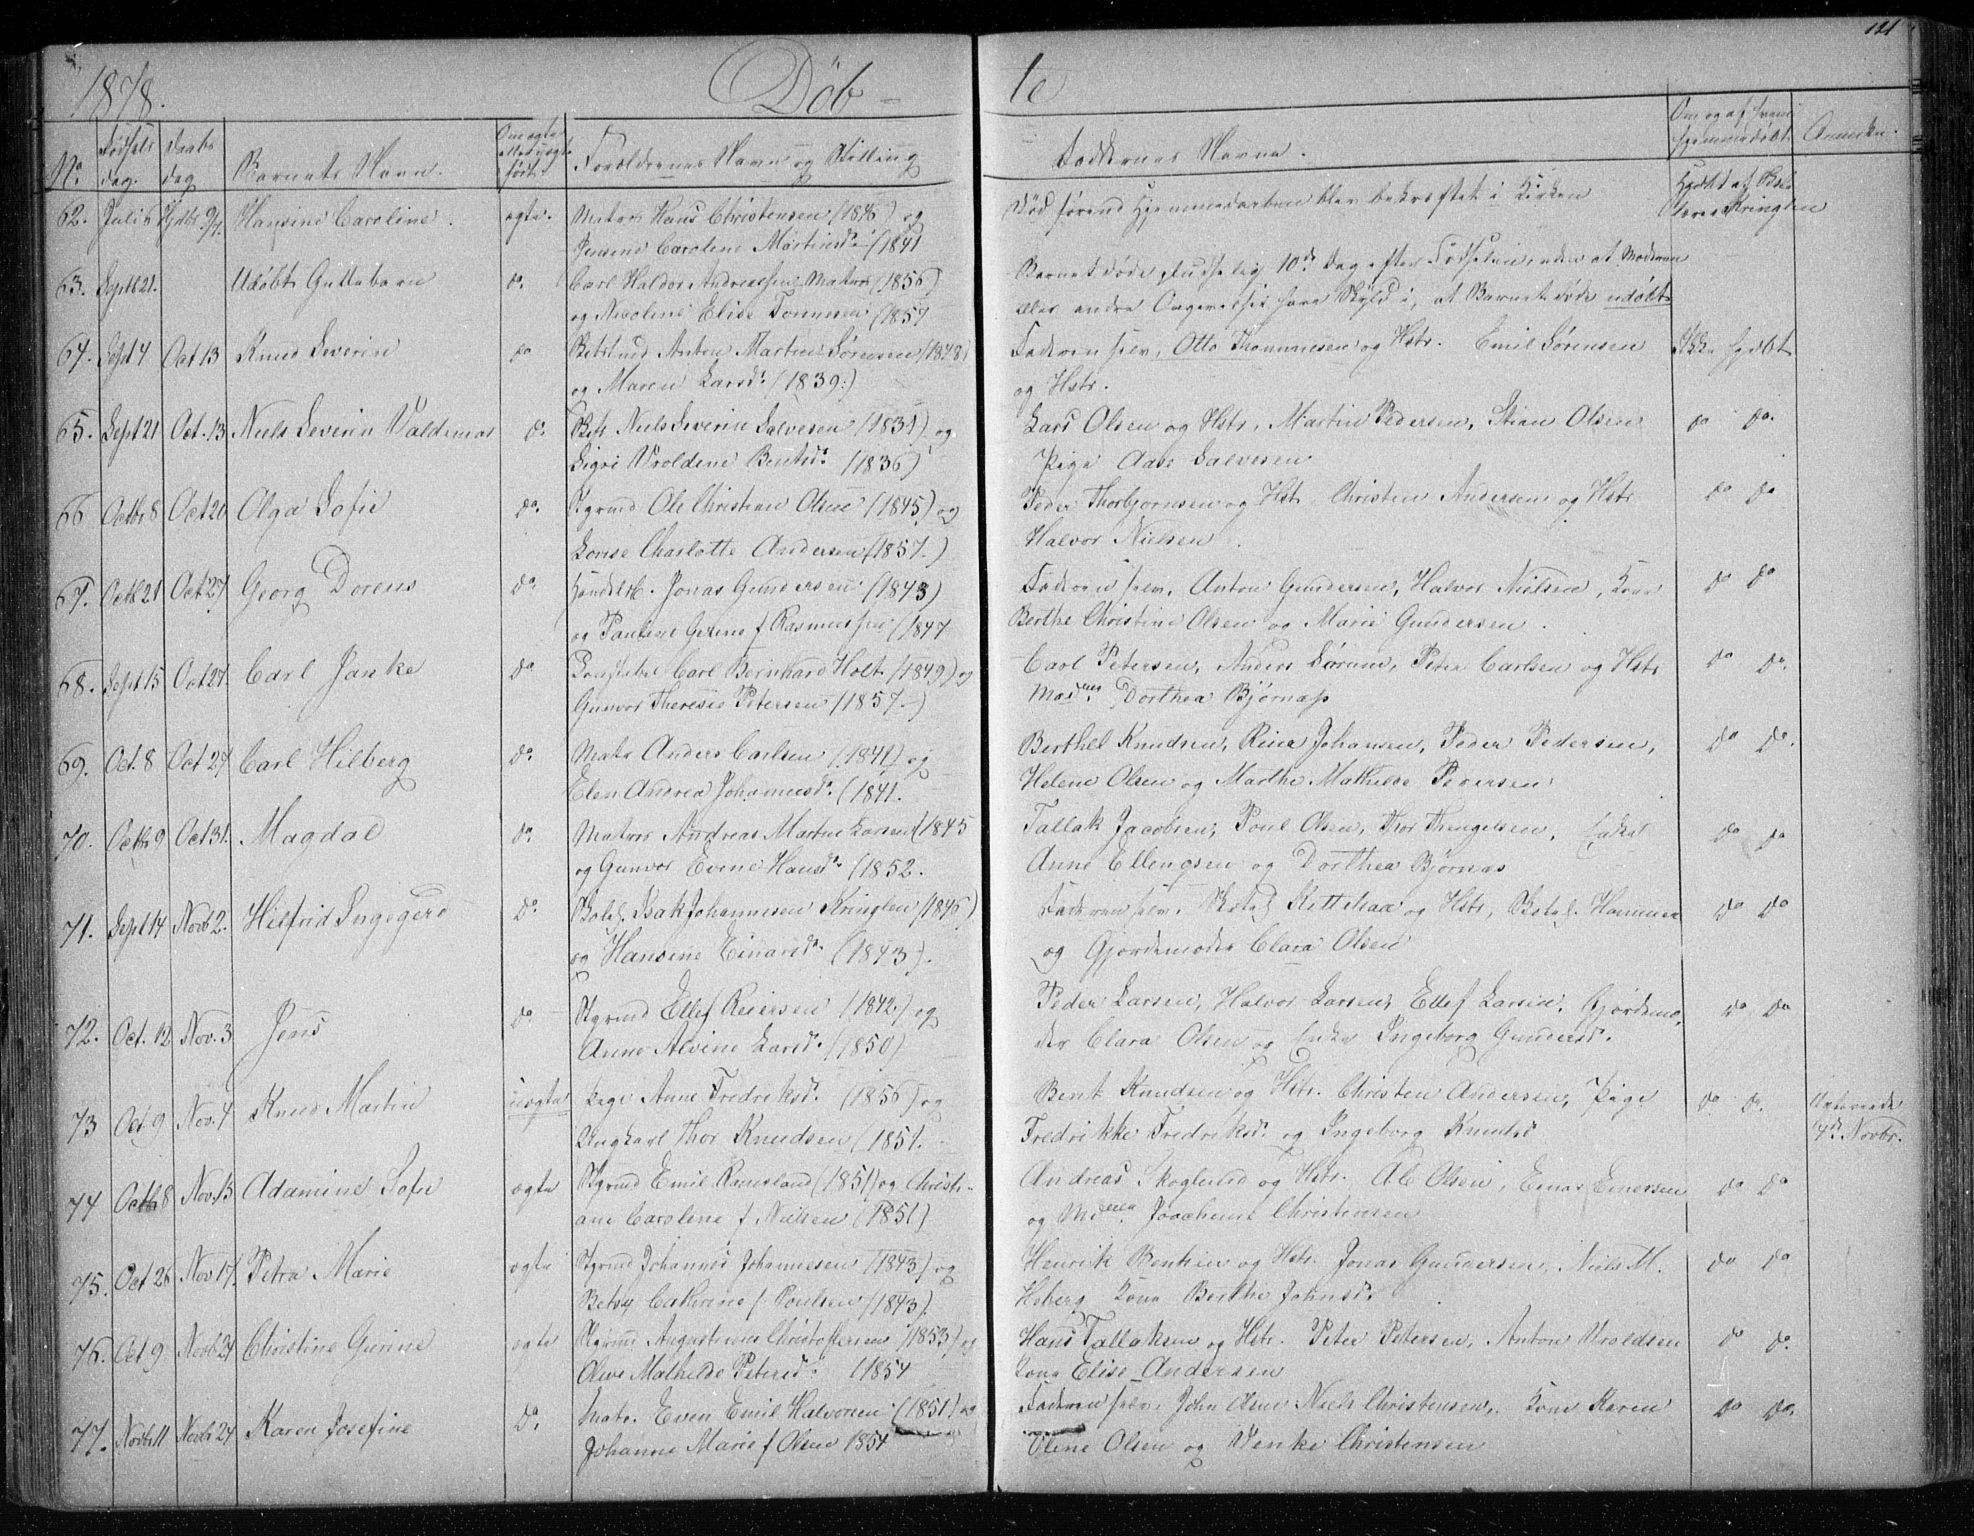 121
1878.
Döb-
te
No.
Födsels
dag.
Daabs
dag
Barnets Navn.
Om ægte
eller uægte
født.
Forældrenes Navn og Stilling
Faddernes Navne.
Om og af hvem
hjemmedøbt
Anmærkn.
62. Juli 6 Hansine Caroline. ægte. Matros Hans Christensen (1846) og
Jensine Caroline Martinsd. (1841
Död förend Hjemmedaaben blev bekræftet i Kirken
Hjdbt af
Kringlen
63. Septb 21. Udöbt Guttebarn do. Carl Haldor Andreassen Matros (1856)
og Nicoline Elise Tönnesen (1857
Barnet döde pludselig 10de Dag efter Födselen, uden at Moderen
eller andre Omgivelser have Skyld i, at Barnet döde udöbt
64. Sept 4 Oct 13 Knud Severin do Anton Martin Sörensen (1848)
og Maren Larsd. (1839.)
Faderen selv, Otto Thommesen og Hstr. Emil Sörensen
og Hstr.
Ikke hjdbt
65. Sept 21 Oct. 13 Niels Severin Valdemar do. Niels Severin Salvesen (1834) og
Sigri Uroldine Bentsd. (1836)
Lars Olsen og Hstr, Martin Pedersen, Stian Olsen
Pige Aase Salvesen
do do.
66 Octbr 8 Oct 20 Olga Sofie do. Ole Christian Olsen (1845) og
Lovise Charlotte Andersen (1857.)
Peder Thorbjornsen og Hstr Christen Andersen og Hstr
Halvor Nielsen.
do do
67. Octb 21 Oct 27 Georg Dorens do. Handelsb. Jonas Gundersen (1843)
og Pauline Gurine f. Rasmussen (1847
Faderen selv, Anton Gundersen, Halvor Nielsen, Kone
Berthe Christine Olsen og Marie Gundersen.
do do
68. Sept 15 Oct 27. Carl Janke do Constabel Carl Bernhard Holt (1849) og
Gunvor Theresie Petersen (1857.)
Carl Petersen, Anders Sörum, Peter Carlsen og Hstr
Madmes Dorthea Björnaas
do do.
69. Oct. 8 Oct 27 Carl Hilberg do. Matr Anders Carlsen (1841) og
Elen Andrea Johannesd. (1841.
Berthel Knudsen, Rine Johansen, Peder Pedersen,
Helene Olsen og Marthe Mathilde Pedersen.
do do.
70. Octb 9 Oct 31. Magdal do. Matros Andreas Martin Larsen (1845
og Gunvor Evine Hansd. (1852.
Tallak Jacobsen, Poul Olsen, Thor Thengelsen, Enke
Anne Ellengsen og Dorthea Björnas
do do
71. Sept 14 Novb 2. Hilfrid Ingegerd do. Isak Johannesen Kringlen (1846)
og Hansine Einarsd. (1843).
Faderen selv. og Hstr,
og Gjordemoder Clara Olsen
do do
72. Oct. 12 Nov. 3 Jens do. Styrmd Ellef Reiersen (1842) og
Anne Alvine Larsd. (1850)
Peder Larsen, Halvor Larsen, Ellef Larsen, Gjördemo-
der Clara Olsen og Enke Ingeborg Gundersd.
do do
73 Oct. 9 Nov. 4 Knud Martin uægte Pige Anne Fredriksd. (1856) og
Ungkarl Thor Knudsen (1851.
Bent Knudsen og Hstr. Christen Andersen, Pige
Fredrikke Fredriksd. og Ingeborg Knudsd
do do.
4de Novbr.
74 Octb 8 Nov. 15 Adamine Sofie ægte Styrmd Emil Ramsland (1851) og Christi-
ane Caroline f. Nielsen (1851)
Andreas Skoglund og Hstr. Ole Olsen, Einar Einersen
og Mdmen Joachime Christensen
do do
75. Oct 26 Nov 17. Petra Marie ægte Styrmd Johannes Johannesen (1843) og
Betsy Cathrine f. Poulsen (1843).
Henrik Bentsen og Hstr. Jonas Gundersen, Niels M.
Heberg Kone Berthe Johnsd.
do do
76. Oct 9 Novb 24 Christine Gurine ægte Styrmd Augustinus Christoffersen (1853) og
Olive Mathilde Petersd. (1854
Hans Tallaksen og Hstr. Peter Petersen, Anton Uroldsen
Kone Elise Andersen
do do.
77. Novbr 11 Novbr 24 Karen Josefine do. Matr. Even Emil Halvorsen (1851) og
Johanne Marie f. Olsen 1854
Faderen selv. John Olsen Niels Christensen, Kone Karen
Eline Olsen og Venke Christensen
do do.